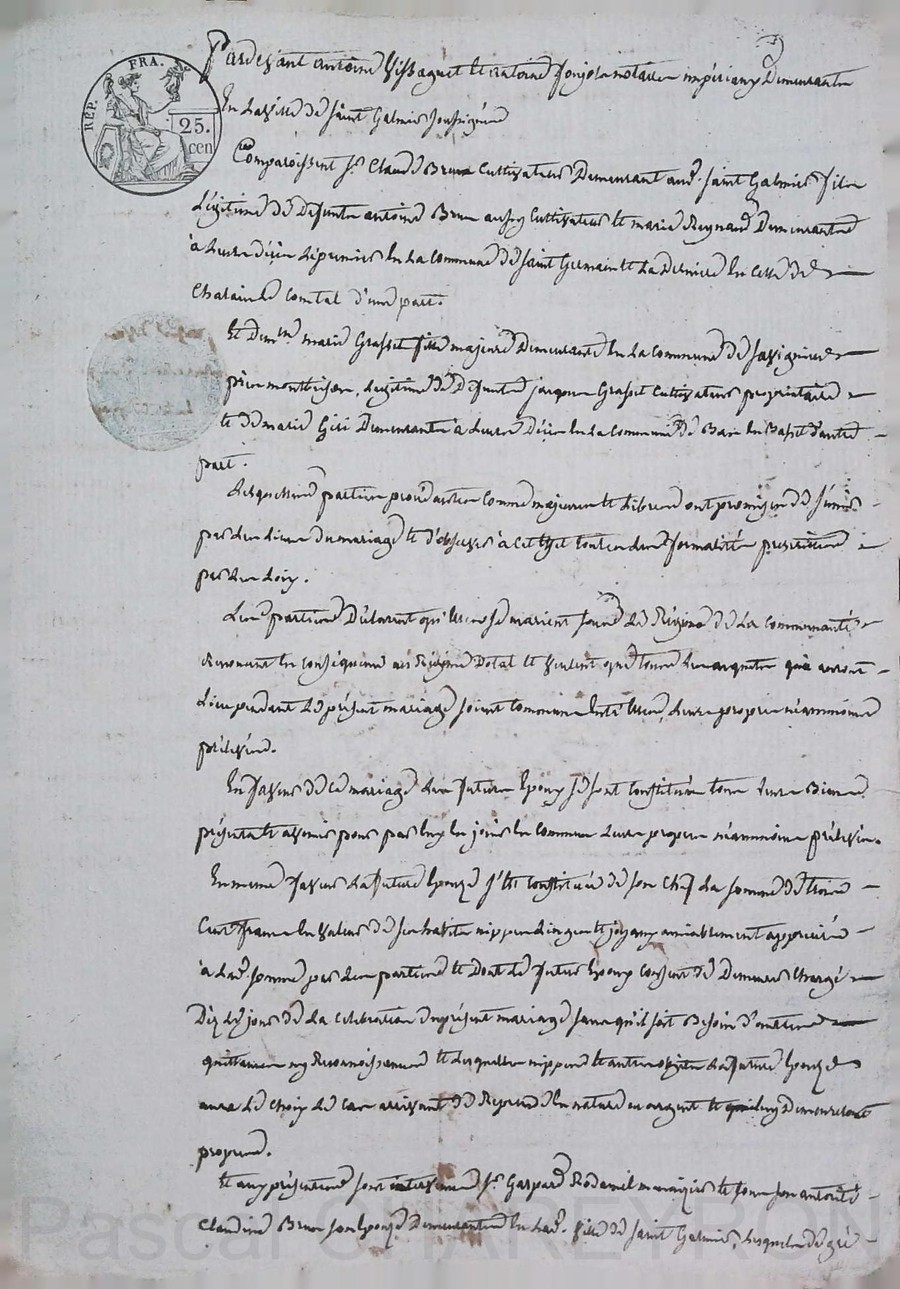 RÉP. FRA.
25.
cen
Pardevant antoine et antoine notaires impériaux Demeurants
En La ville de Saint Galmier Soussignés
Comparoissent Sr. Claude Brun Cultivateur Demeurant aud. Saint Galmier fils
Légitime de Defunts antoine Brun aussy Cultivateur et marie Reynaud Demeurants
à Leurs décès Le premier En La Commune de Saint Germain et La Derniere En Celle de
Chalain Le Comtal d'une part.
Et Demlle marie Grasset fille majeure Demeurante En La Commune de Savignieu
près montbrison, Légitime de Defunts jacques Grasset Cultivateur propriétaire
et de marie Giri Demeurants à Leurs Décès En La Commune de Bas En Basset d'autre
part.
Lesquelles parties procédantes Comme majeures et Libres ont promis de S'unir
par Les Liens du mariage et d'observer à Cet Effet toutes Les formalités prescrites
par Les Loix.
Les parties Déclarent qu'Elles se marient sous Le Régime de La Communauté
Renoncent En Conséquence au Régime Dotal et Veulent que tous Les acquets qui auront
Lieu pendant Le présent mariage soient Communs Entr'Elles, Leurs propres néanmoins
prélevés.
En faveur de ce mariage Les futurs Epoux se sont Constitués tous Leurs Biens
présents et avenir pour par Eux En jouir En Commun Leurs propres néanmoins prélevés.
En meme faveur La future Epouse s'est Constituée de son Chef La somme de trois
Cent francs En Valeur de ses habits nippes Linges et joyaux amiablement appréciés
à Lad. somme par Les parties et Dont Le futur Epoux Consent de Demeurer Chargé
Dès Le jour de La Celebration du présent mariage sans qu'il soit Besoin d'autres
quittances ny Reconnoissances et Lesquelles nippes et autres objets La future Epouse
aura Le Choix Le Cas arrivant de Reprendre En nature ou argent et qui Luy Demeureront
propres.
Et aux présentes sont intervenus Sr. Gaspard et sous son autorité
Claudine Brun son Epouse Demeurants En Lad. Ville de Saint Galmier, Lesquels de gré
Pascal CHAREYRON